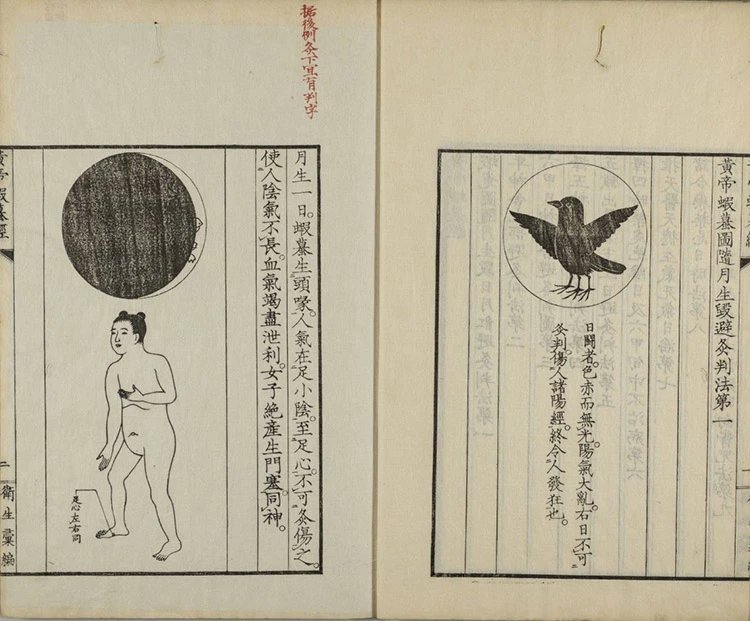 黃帝蝦蟇圖隨月生毀避灸判法第一
日鬪者。色赤而無光陽氣大亂。右日不可
灸判傷人諸陽經。終令人發狂也。
据後例灸下宜有判字
月生一日。蝦蟇生頭喙。人氣在足小陰。至足心。不可灸傷之。
使人陰氣不長。血氣竭盡泄利。女子絶產生門塞。同神。
足心左右同
黃帝蝦蟇經
二
衛生彙編